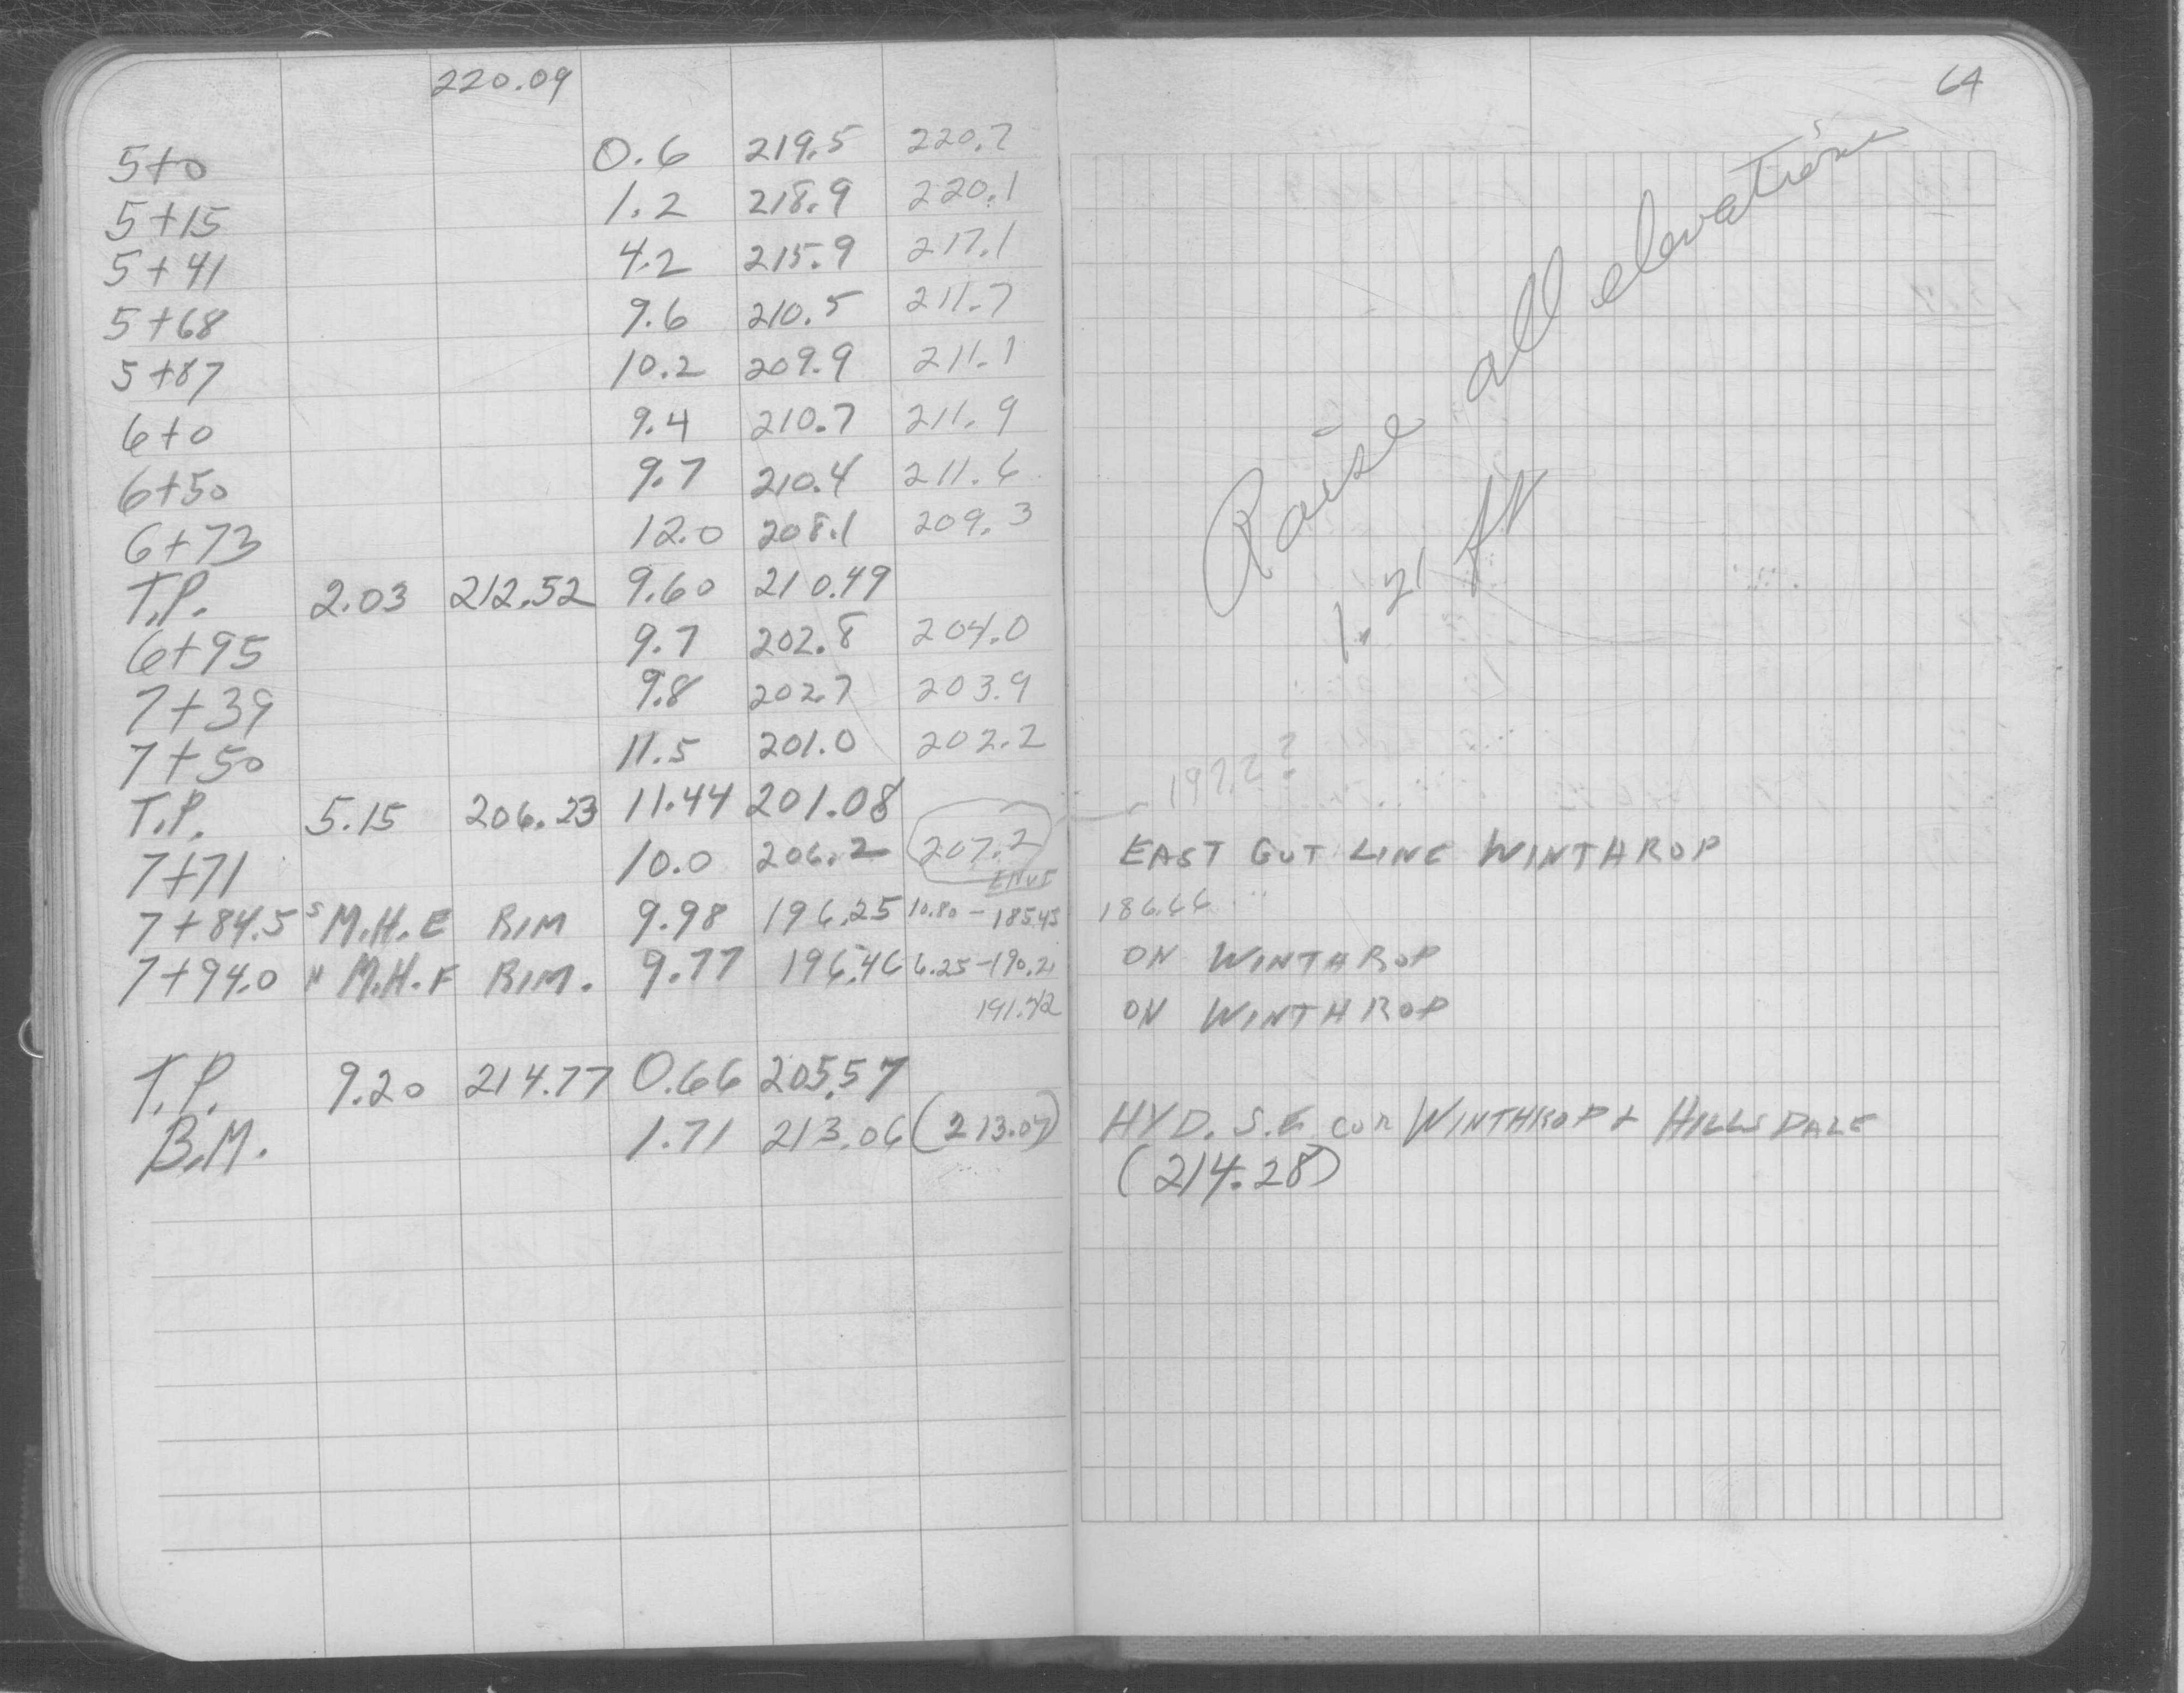 220.09
5+0 0.6 219.5 220.7
5+15 1.2 218.9 220.1
5+41 4.2 215.9 217.1
5+68 9.6 210.5 211.7
5+87 10.2 209.9 211.1
6+0 9.4 210.7 211.9
6+50 9.7 210.4 211.6
6+73 12.0 208.1 209.3
T.P. 2.03 212.52 9.60 210.49
6+95 9.7 202.8 204.0
7+39 9.8 202.7 203.9
7+50 11.5 201.0 202.2
T.P. 5.15 206.23 11.44 201.08
7+71 10.0 206.2 207.2
INVE
7+84.5 S M.H.E RIM 9.98 196.25 10.80 - 185.45
7+94.0 N M.H.F RIM. 9.77 196.46 6.25 - 190.21
191.42
T.P. 9.20 214.77 0.66 205.57
B.M. 1.71 213.06 (213.07)
64
Raise all elevations
1.21 ft
197.2?
EAST GUT LINE WINTHROP
186.66
ON WINTHROP
ON WINTHROP
HYD. S.E COR WINTHROP & HILLSDALE
(214.28)